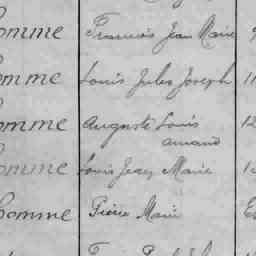 homme François Jean Marie
homme Louis Jules Joseph
homme Auguste Louis
amand
homme Louis Jean Marie
homme Pierre Marie